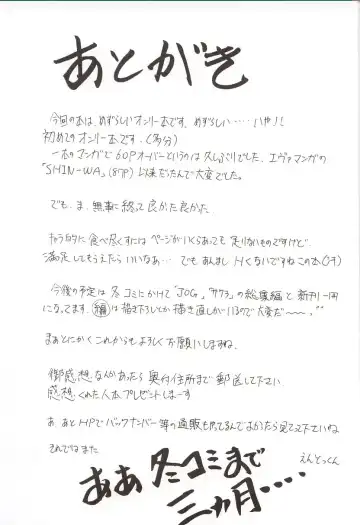 あとがき
今回の本は、めずらしいオンリー本です。めずらしい……いや!!
初めてのオンリー本です。(多分)
一本のマンガで60Pオーバーというのは久しぶりでした。エヴァマンガの
「SHIN-WA」(87P)以来だったんで大変でした。
でも、ま、無事に終って良かた良かた
キャラ的に食べ尽くすにはページがいくらあっても足りないものですけど、
満足してもらえたらいいなぁ… でもあんましHくないですねこの本
今後の予定は冬コミにかけて「JOG」、「サクラ」の総集編と新刊一冊
になってます。編は描き下ろしてか描き直しか一いるので大変だ〜〜。
まぁとにかくこれからもよろしくお願いしますね。
御感想なんかあったら奥付住所まで郵送して下さい。
感想くれた人本プレゼントしまーす
あ、あとHPでバックナンバー等の通販もやってるんでよかったら見てって下さいね
それではまた
えんとっくん
ああ冬コミまで
三ヵ月‥‥